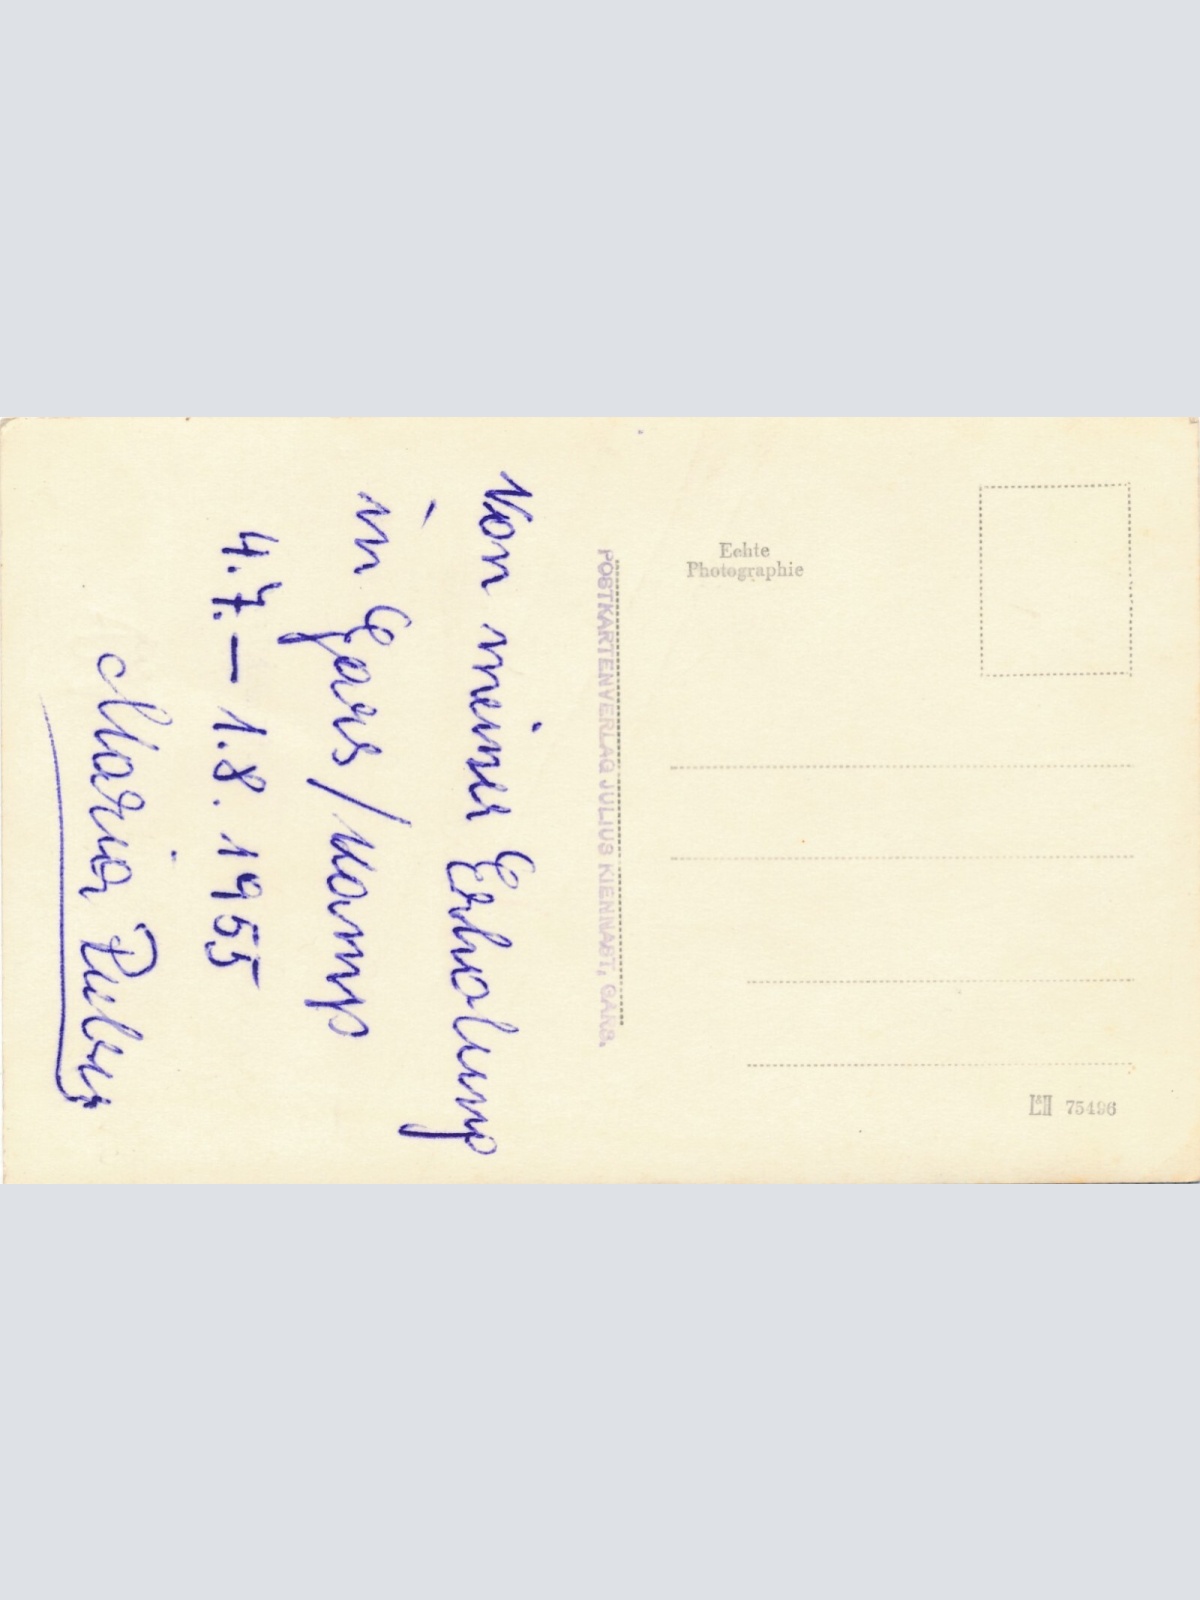 Von meiner Erholung
in Gars/Kamp
4.7. – 1.8. 1955
Maria
POSTKARTENVERLAG JULIUS KIENNAST, GARS.
Echte
Photographie
75496